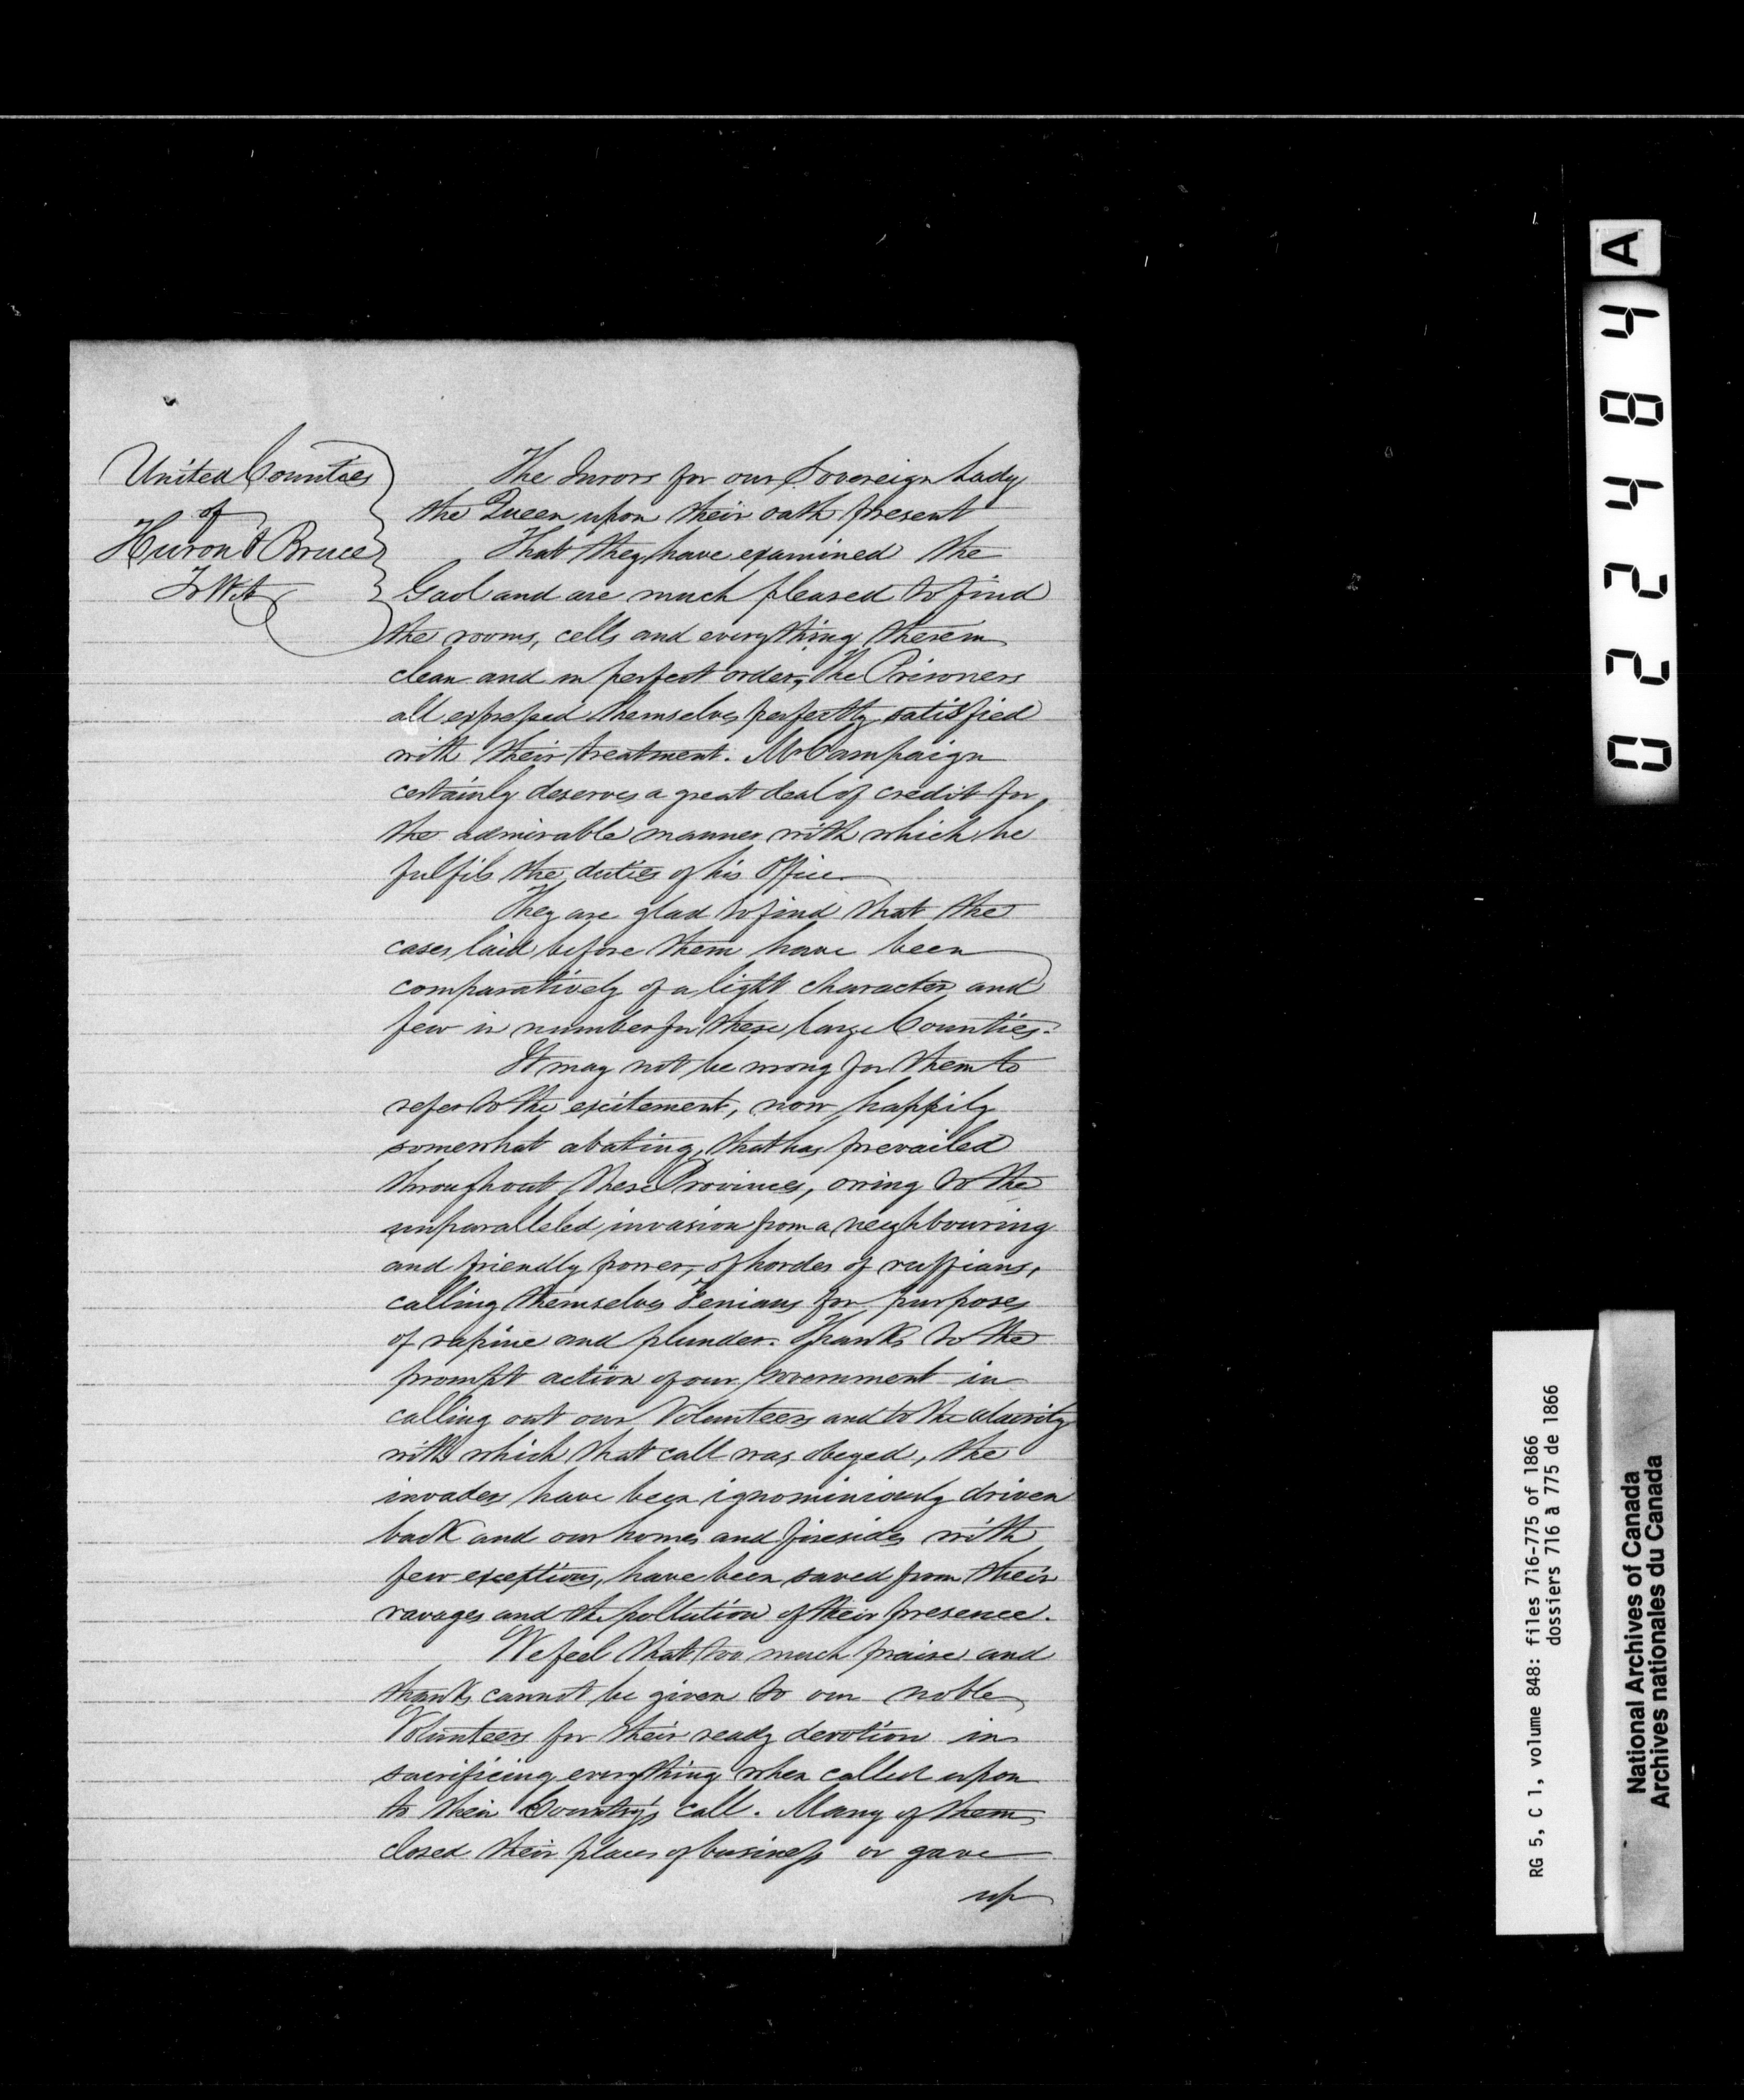 United Counties
of
Huron & Bruce
To Wit
The Jurors for our Sovereign Lady
the Queen upon their oath present
That they have examined the
Gaol and are much pleased to find
the rooms, cells and everything therein
clean and in perfect order, The Prisoners
all expressed themselves perfectly satisfied
with their treatment. Mr Campaign
certainly deserves a great deal of credit for
the admirable manner with which he
fulfils the duties of his Office
They are glad to find that the
cases laid before them have been
comparatively of a light character and
few in number for these large Counties.
It may not be wrong for them to
refer to the excitement, now happily
somewhat abating, that has prevailed
throughout these Provinces, owing to the
unparalleled invasion from a neighbouring
and friendly power, of hordes of ruffians,
calling themselves Fenians for purposes
of rapine and plunder. Thanks to the
prompt action of our Government in
calling out our Volunteers and to the alacrity
with which that call was obeyed, the
invaders have been ignominiously driven
back and our homes and firesides with
few exceptions, have been saved from their
ravages and the pollution of their presence.
We feel that too much praise and
thanks cannot be given to our noble
Volunteers for their ready devotion in
sacrificing everything when called upon
to their Country's call. Many of them
closed their places of business or gave
up
A
022484
RG 5, C 1, volume 848: files 716-775 of 1866
dossiers 716 à 775 de 1866
National Archives of Canada
Archives nationales du Canada